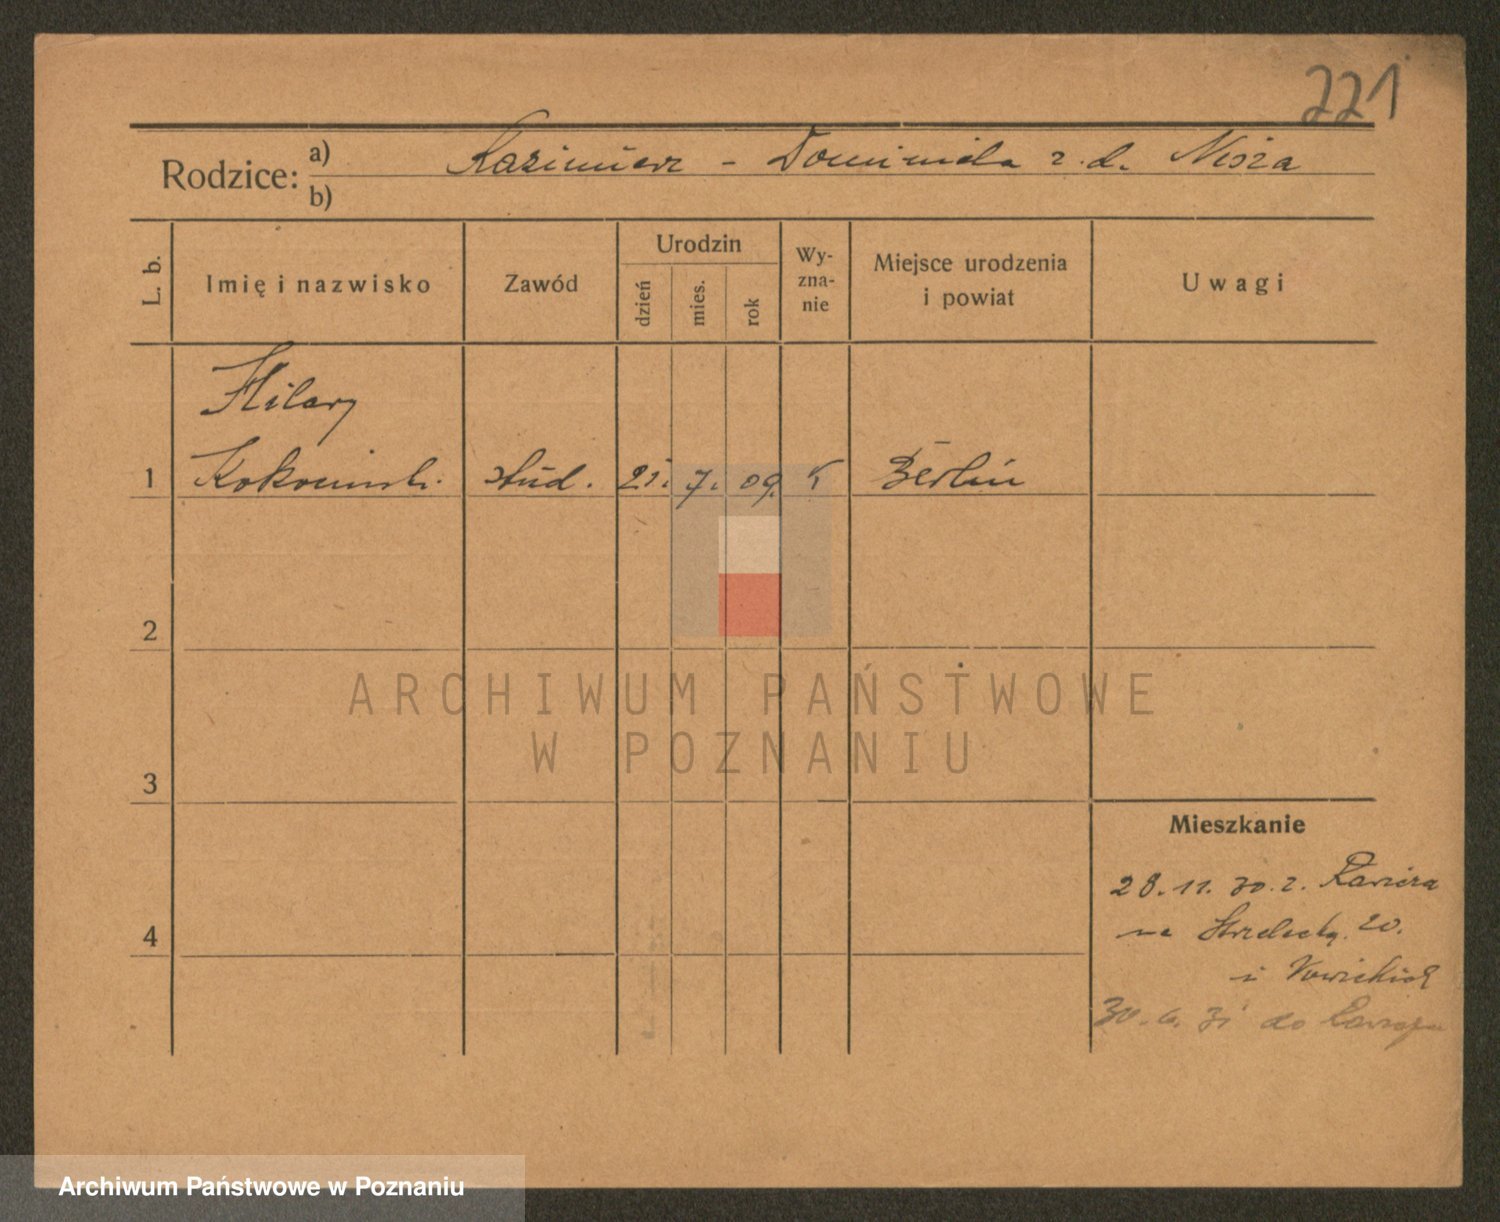 221
Rodzice: a) Kazimierz - Domicela z. d.
b)
L. b.
Imię i nazwisko
Zawód
Urodzin
dzień
mies.
rok
Wy-
zna-
nie
Miejsce urodzenia
i powiat
Uwagi
Hilary
1 Kokocinski. stud. 21. 7. 09. K Berlin
2
ARCHIWUM PAŃSTWOWE
W POZNANIU
3
Mieszkanie
28. 11. 30. z.
na Strzelecką. 20.
4
u
30. 6. 31 do
Archiwum Państwowe w Poznaniu